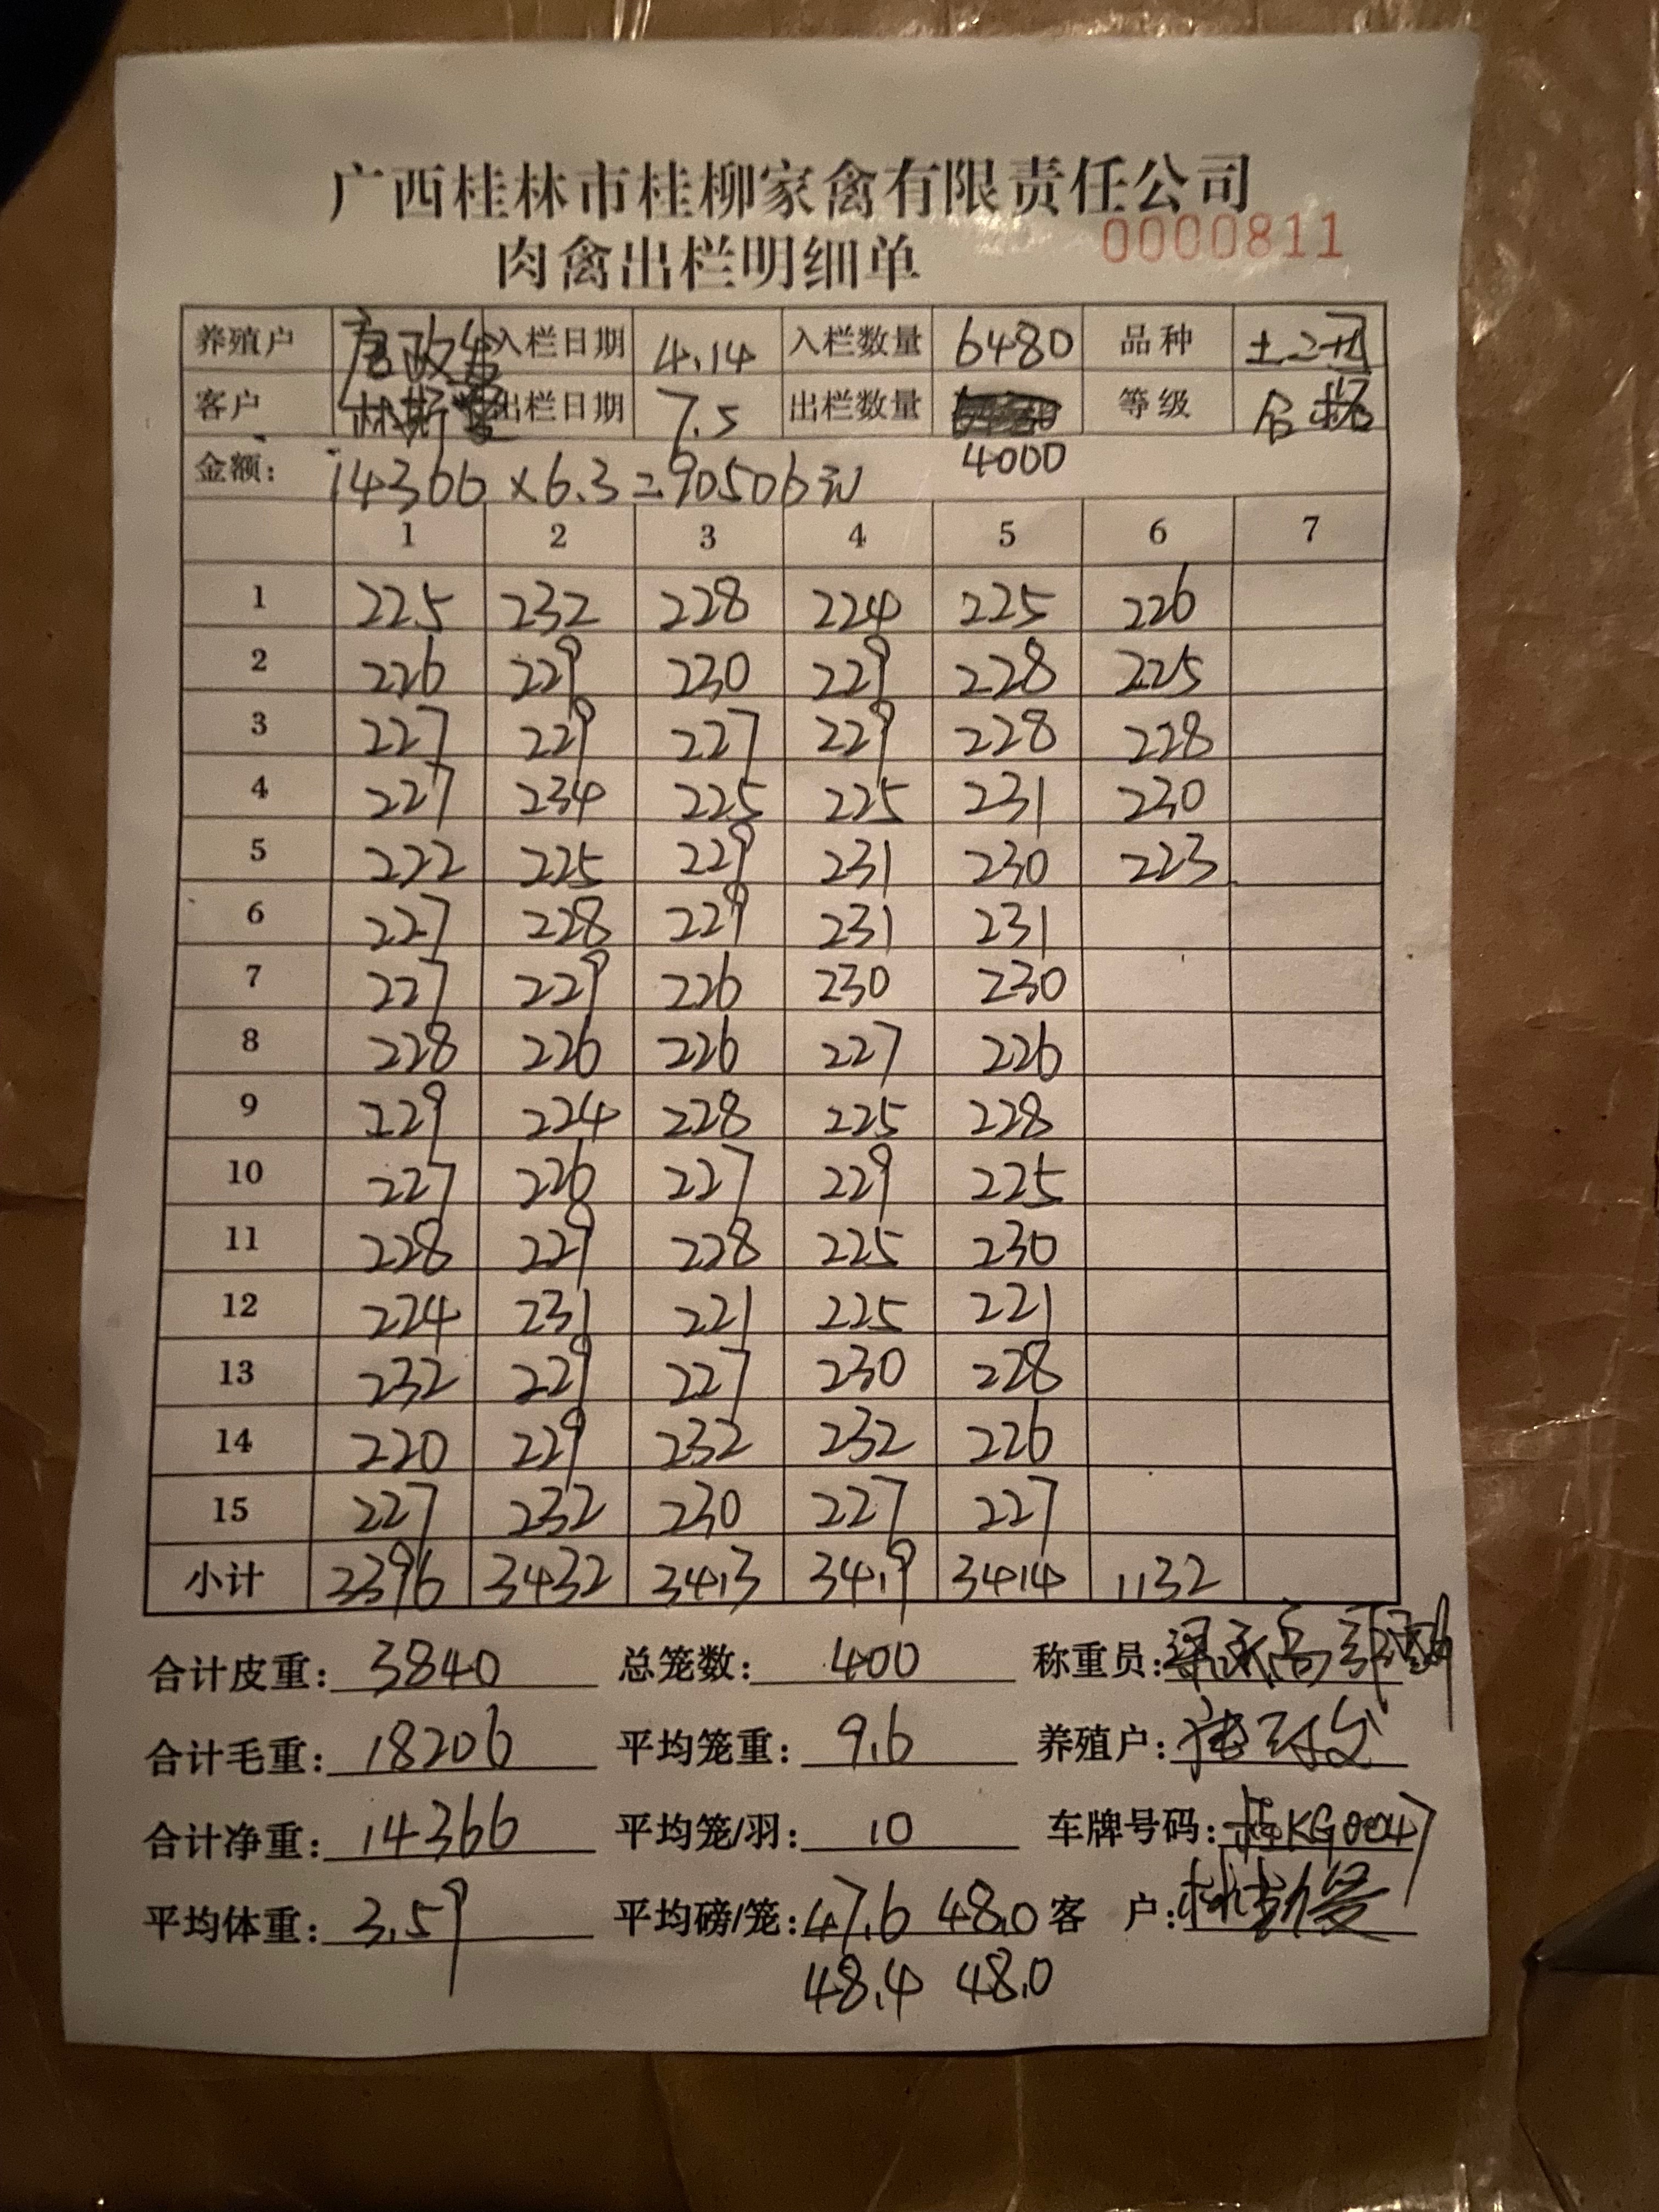 广西桂林市桂柳家禽有限责任公司
肉禽出栏明细单 0000811
养殖户 入栏日期 4.14 入栏数量 6480 品种 土2
客户 出栏日期 7.5 出栏数量 4000 等级 合格
金额: 14366 × 6.3 = 90506元
1 2 3 4 5 6 7
1 225 232 228 224 225 226
2 226 229 230 229 228 225
3 227 229 227 229 228 228
4 227 234 225 225 231 230
5 222 225 229 231 230 223
6 227 228 229 231 231
7 227 229 226 230 230
8 228 226 226 227 226
9 229 224 228 225 228
10 227 226 227 229 225
11 228 229 228 225 230
12 224 231 221 225 221
13 232 229 227 230 228
14 220 229 232 232 226
15 227 232 230 227 227
小计 3396 3432 3413 3419 3414 1132
合计皮重: 3840 总笼数: 400 称重员:
合计毛重: 18206 平均笼重: 9.6 养殖户:
合计净重: 14366 平均笼/羽: 10 车牌号码: 桂KG0047
平均体重: 3.59 平均磅/笼: 47.6 48.0 客 户:
48.4 48.0